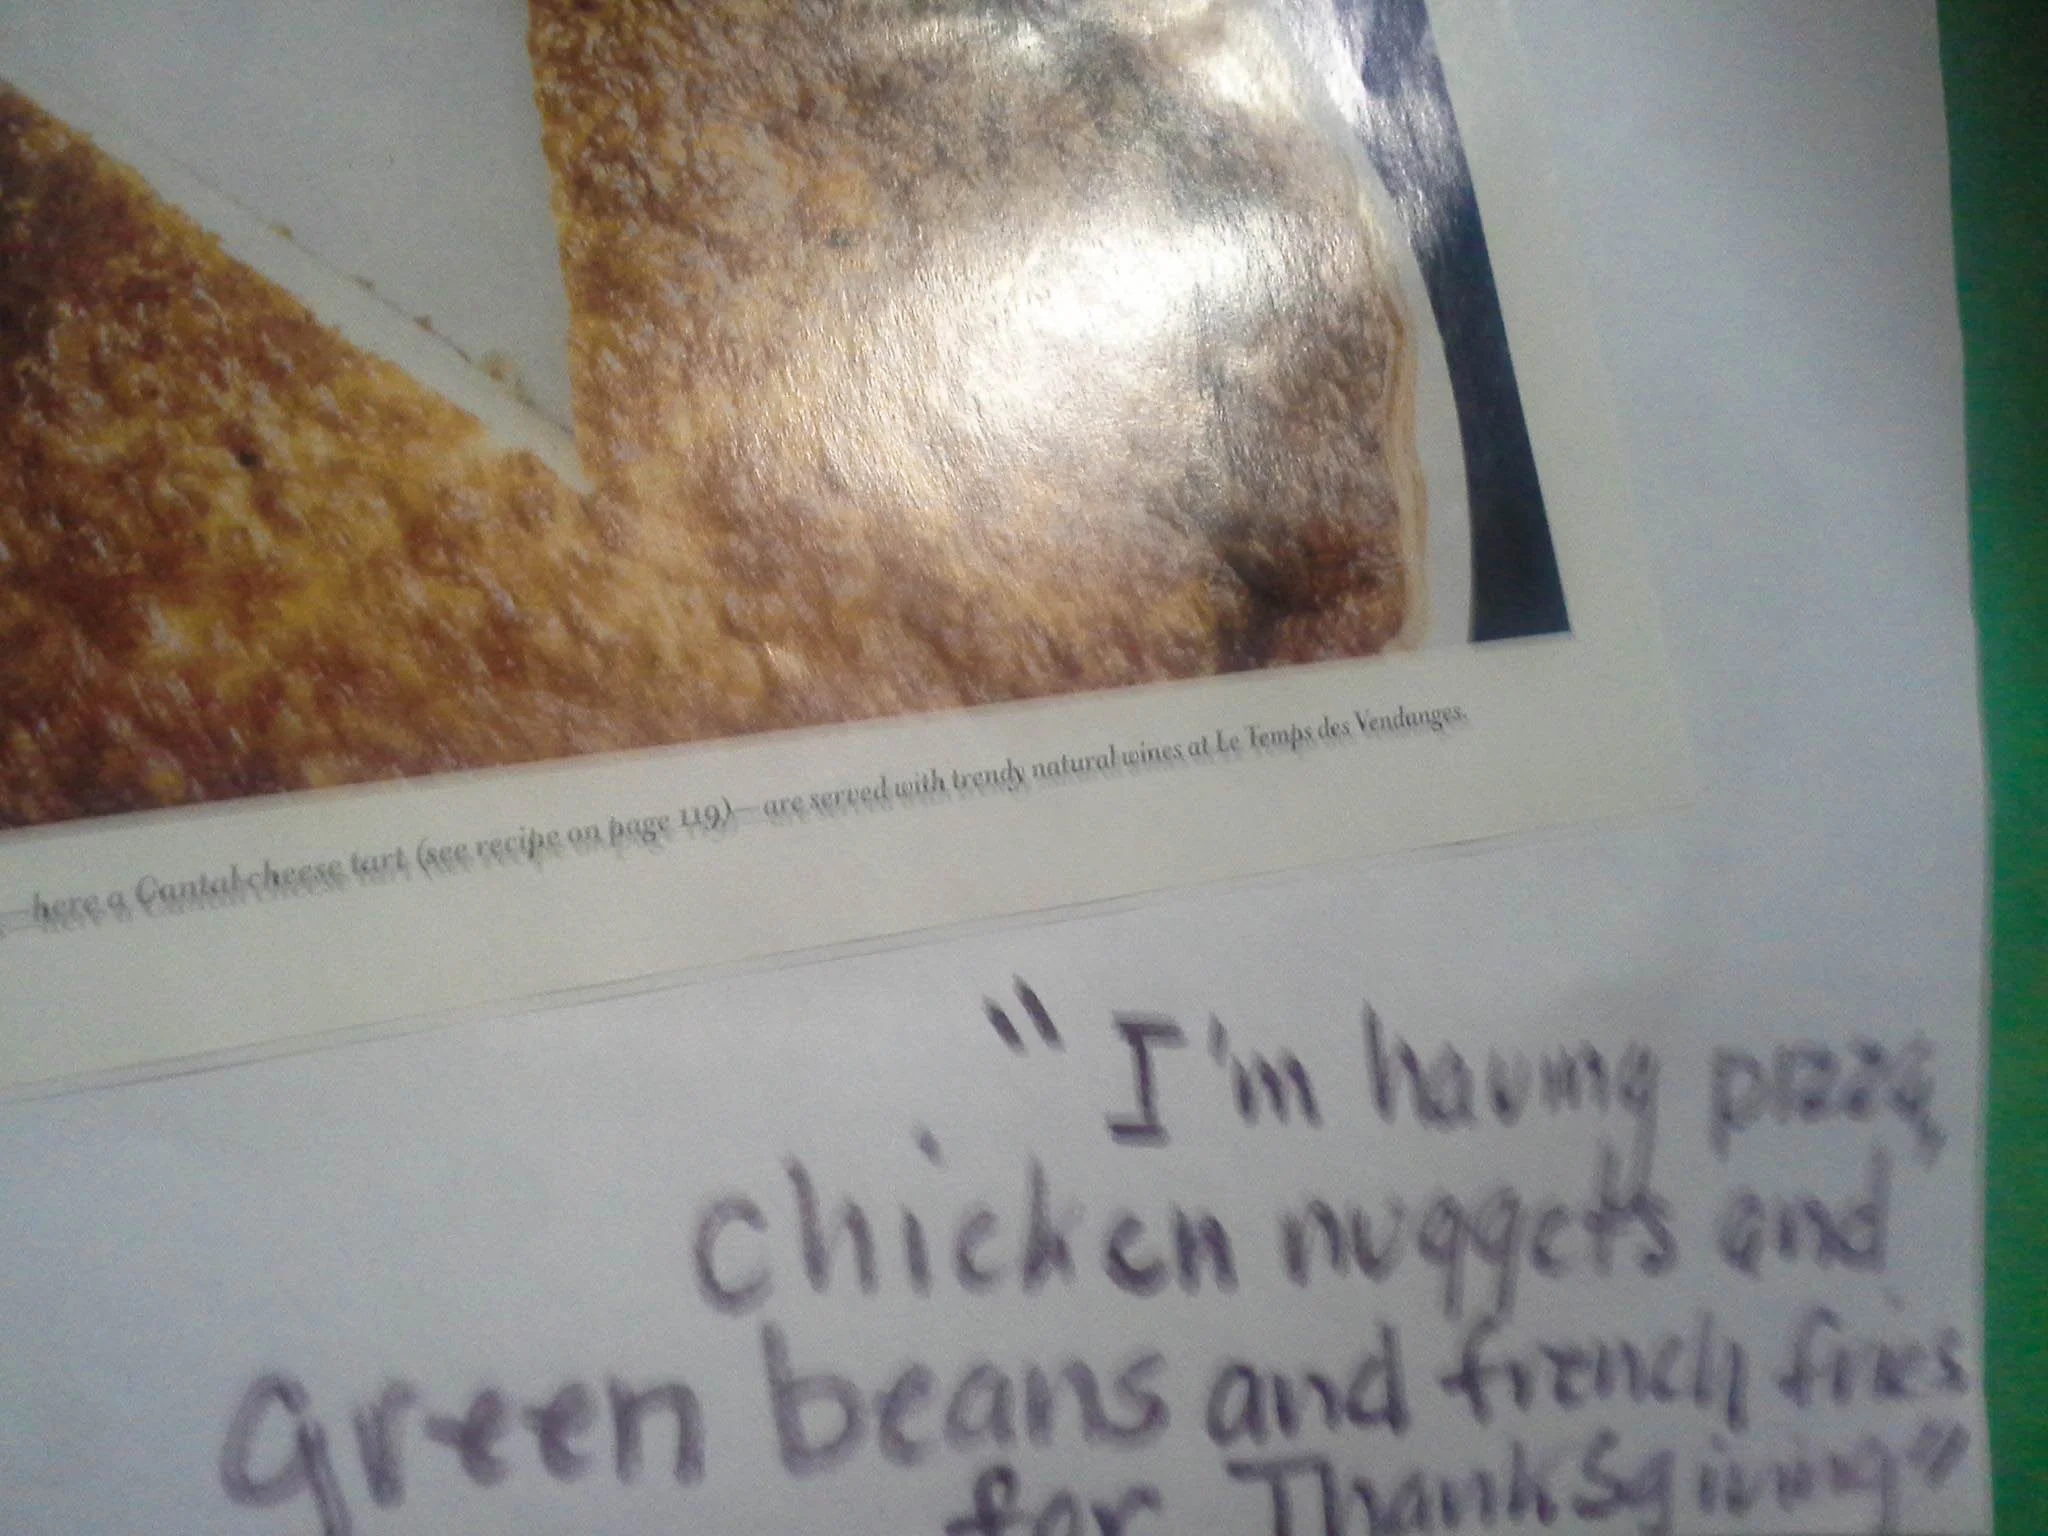 —here a Cantal cheese tart (see recipe on page 119)—are served with trendy natural wines at Le Temps des Vendanges.
"I'm having pizza,
chicken nuggets and
green beans and french fries
for Thanksgiving"